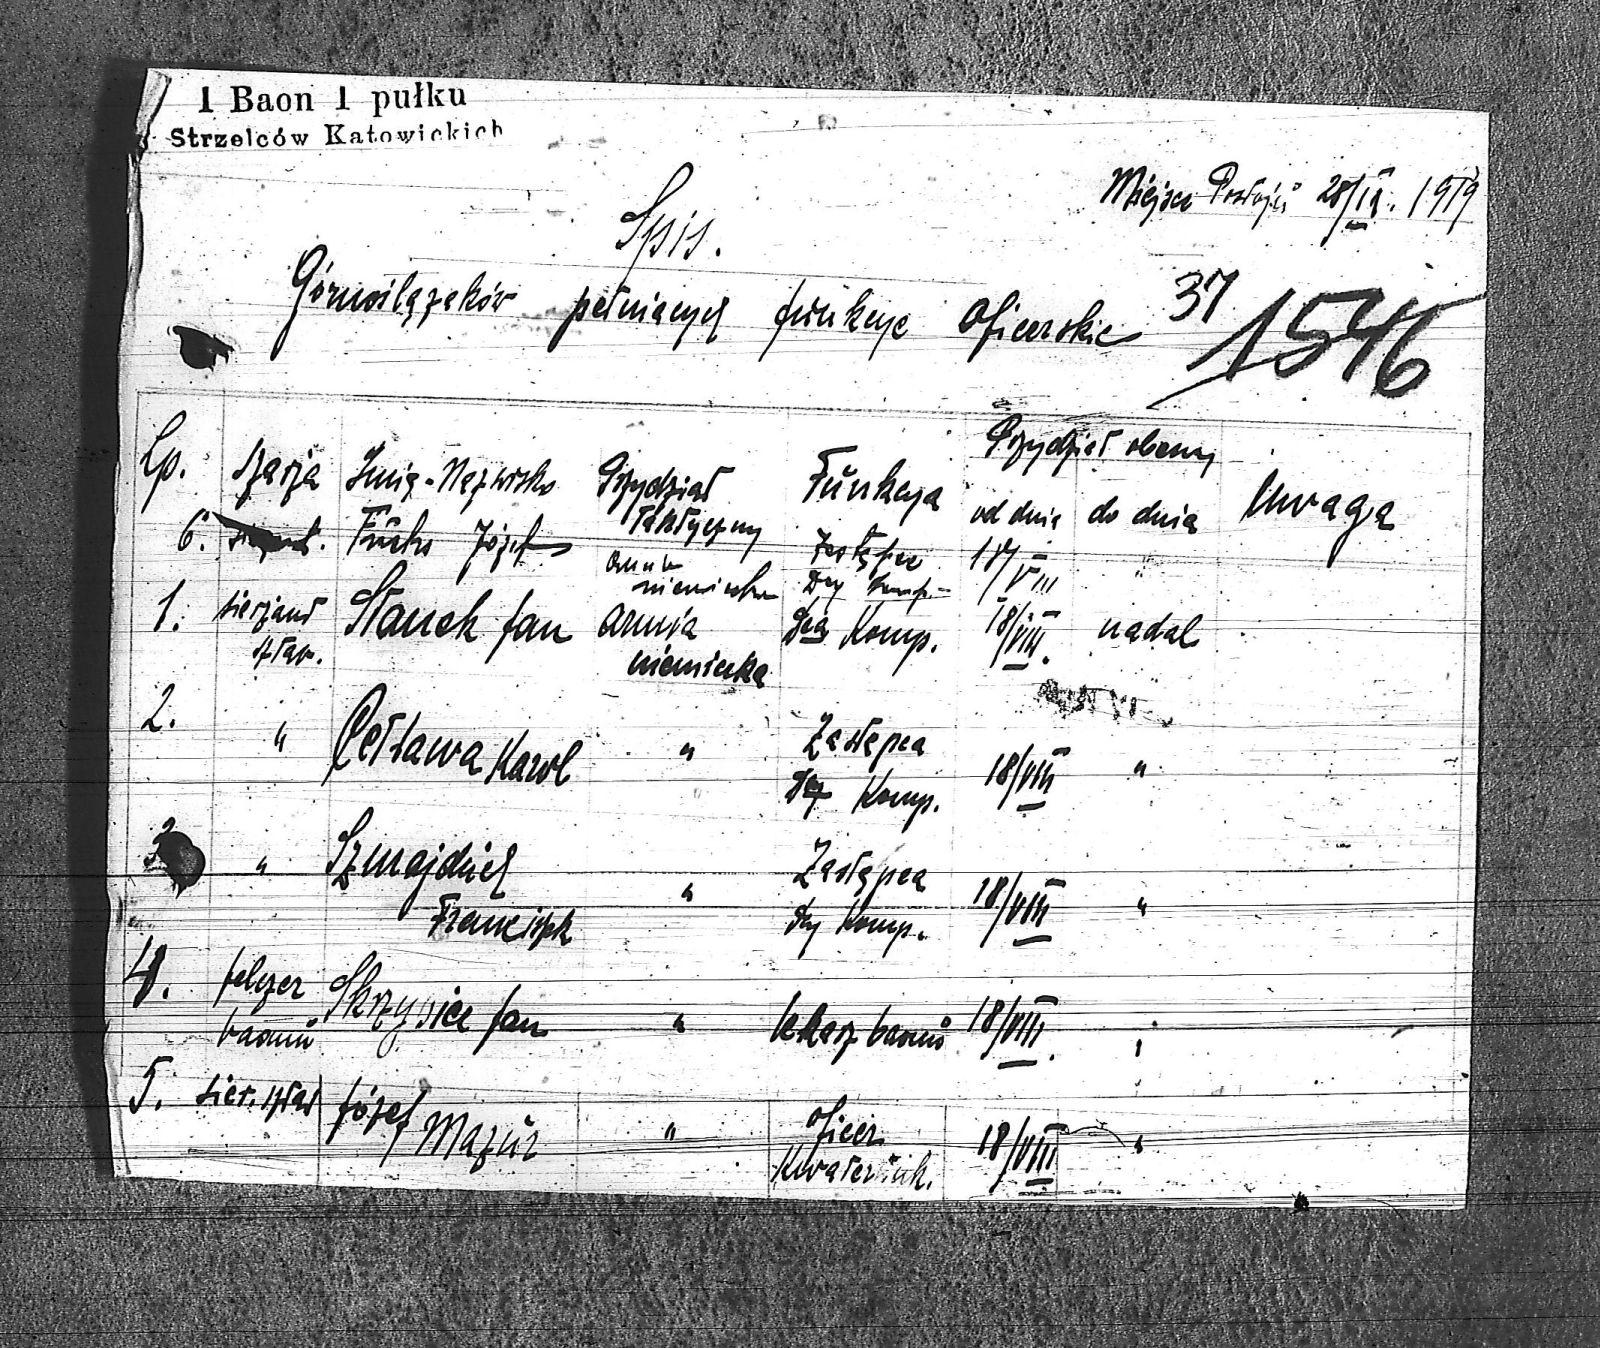 1 Baon 1 pułku
Strzelców Katowickich
Miejsce Postoju 28/IX. 1919
Spis.
Górnoślązaków pełniących funkcye oficerskie 37
1546
Lp. szarja Imię-Nazwisko Przydział taktyczny Funkcya Przydział obecny od dnia do dnia Uwaga
6. sierżant. Fuchs Józef armia niemiecka Zastępca Dcy Komp. 17/VIII "
1. sierżant sztab. Stanek Jan armia niemiecka Dca Komp. 18/VIII. nadal
2. " Pełtawa Karol " Zastępca Dcy Komp. 18/VIII "
3. " Szmajduch Franciszek " Zastępca Dcy Komp. 18/VIII "
4. felczer baonu Jan " lekarz baonu 18/VIII. "
5. sier. sztab Józef Mazur " oficer Kwaternik. 18/VIII "